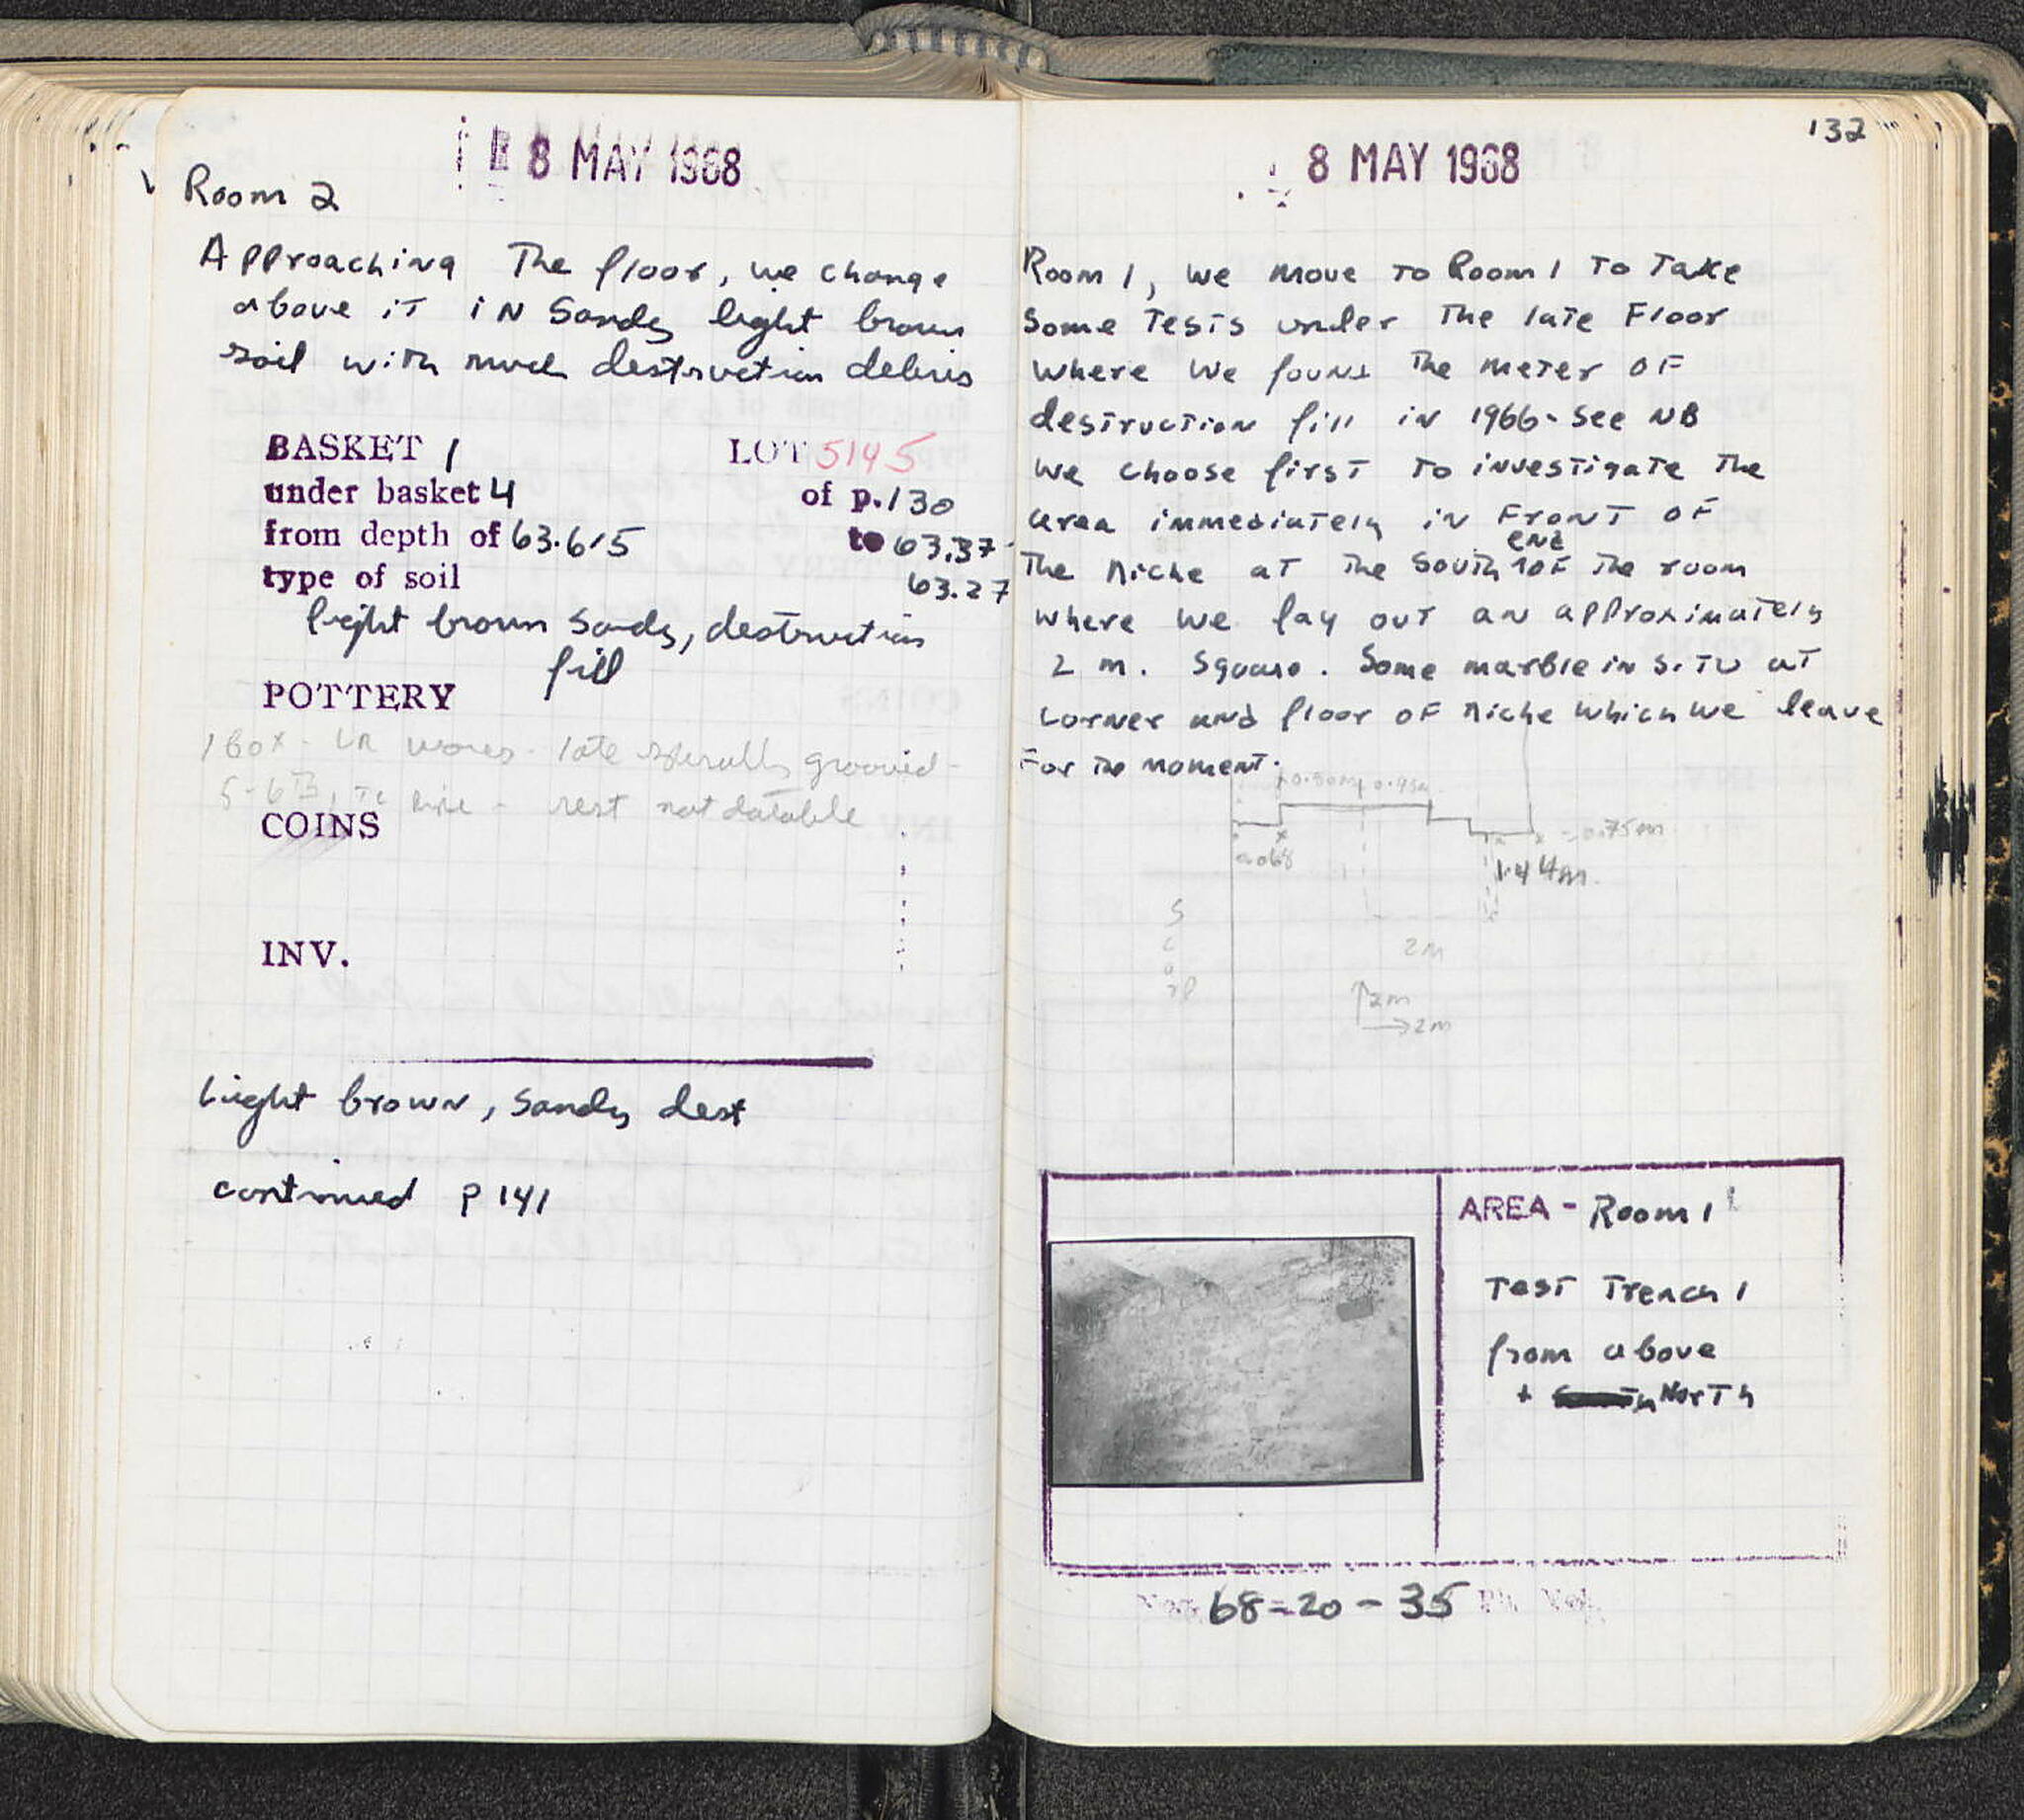 8 MAY 1968
Room 2
Approaching The floor, we change
above it in Sandy light brown
soil with much destruction debris
BASKET 1 LOT 5145
under basket 4 of p. 130
from depth of 63.615 to 63.37
type of soil 63.27
light brown Sandy, destruction
fill
POTTERY
1 Box - LR wares - late spirally grooved -
5-6th, rest not datable
COINS
INV.
Light brown, Sandy dest
continued p 141
132
8 MAY 1968
Room 1, we move to Room 1 To Take
Some Tests under The late Floor
where we found The meter OF
destruction fill in 1966 - see NB
we choose first To investigate The
area immediately in Front OF
end
The niche at The South OF The room
where we lay out an approximately
2 m. Square. Some marble in situ at
corner and floor of niche which we leave
For The moment.
0.50m 0.95m
0.75m
0.68
1.44m.
2m
2m
2m
AREA - Room 1
Test Trench 1
from above
+ North
68-20-35